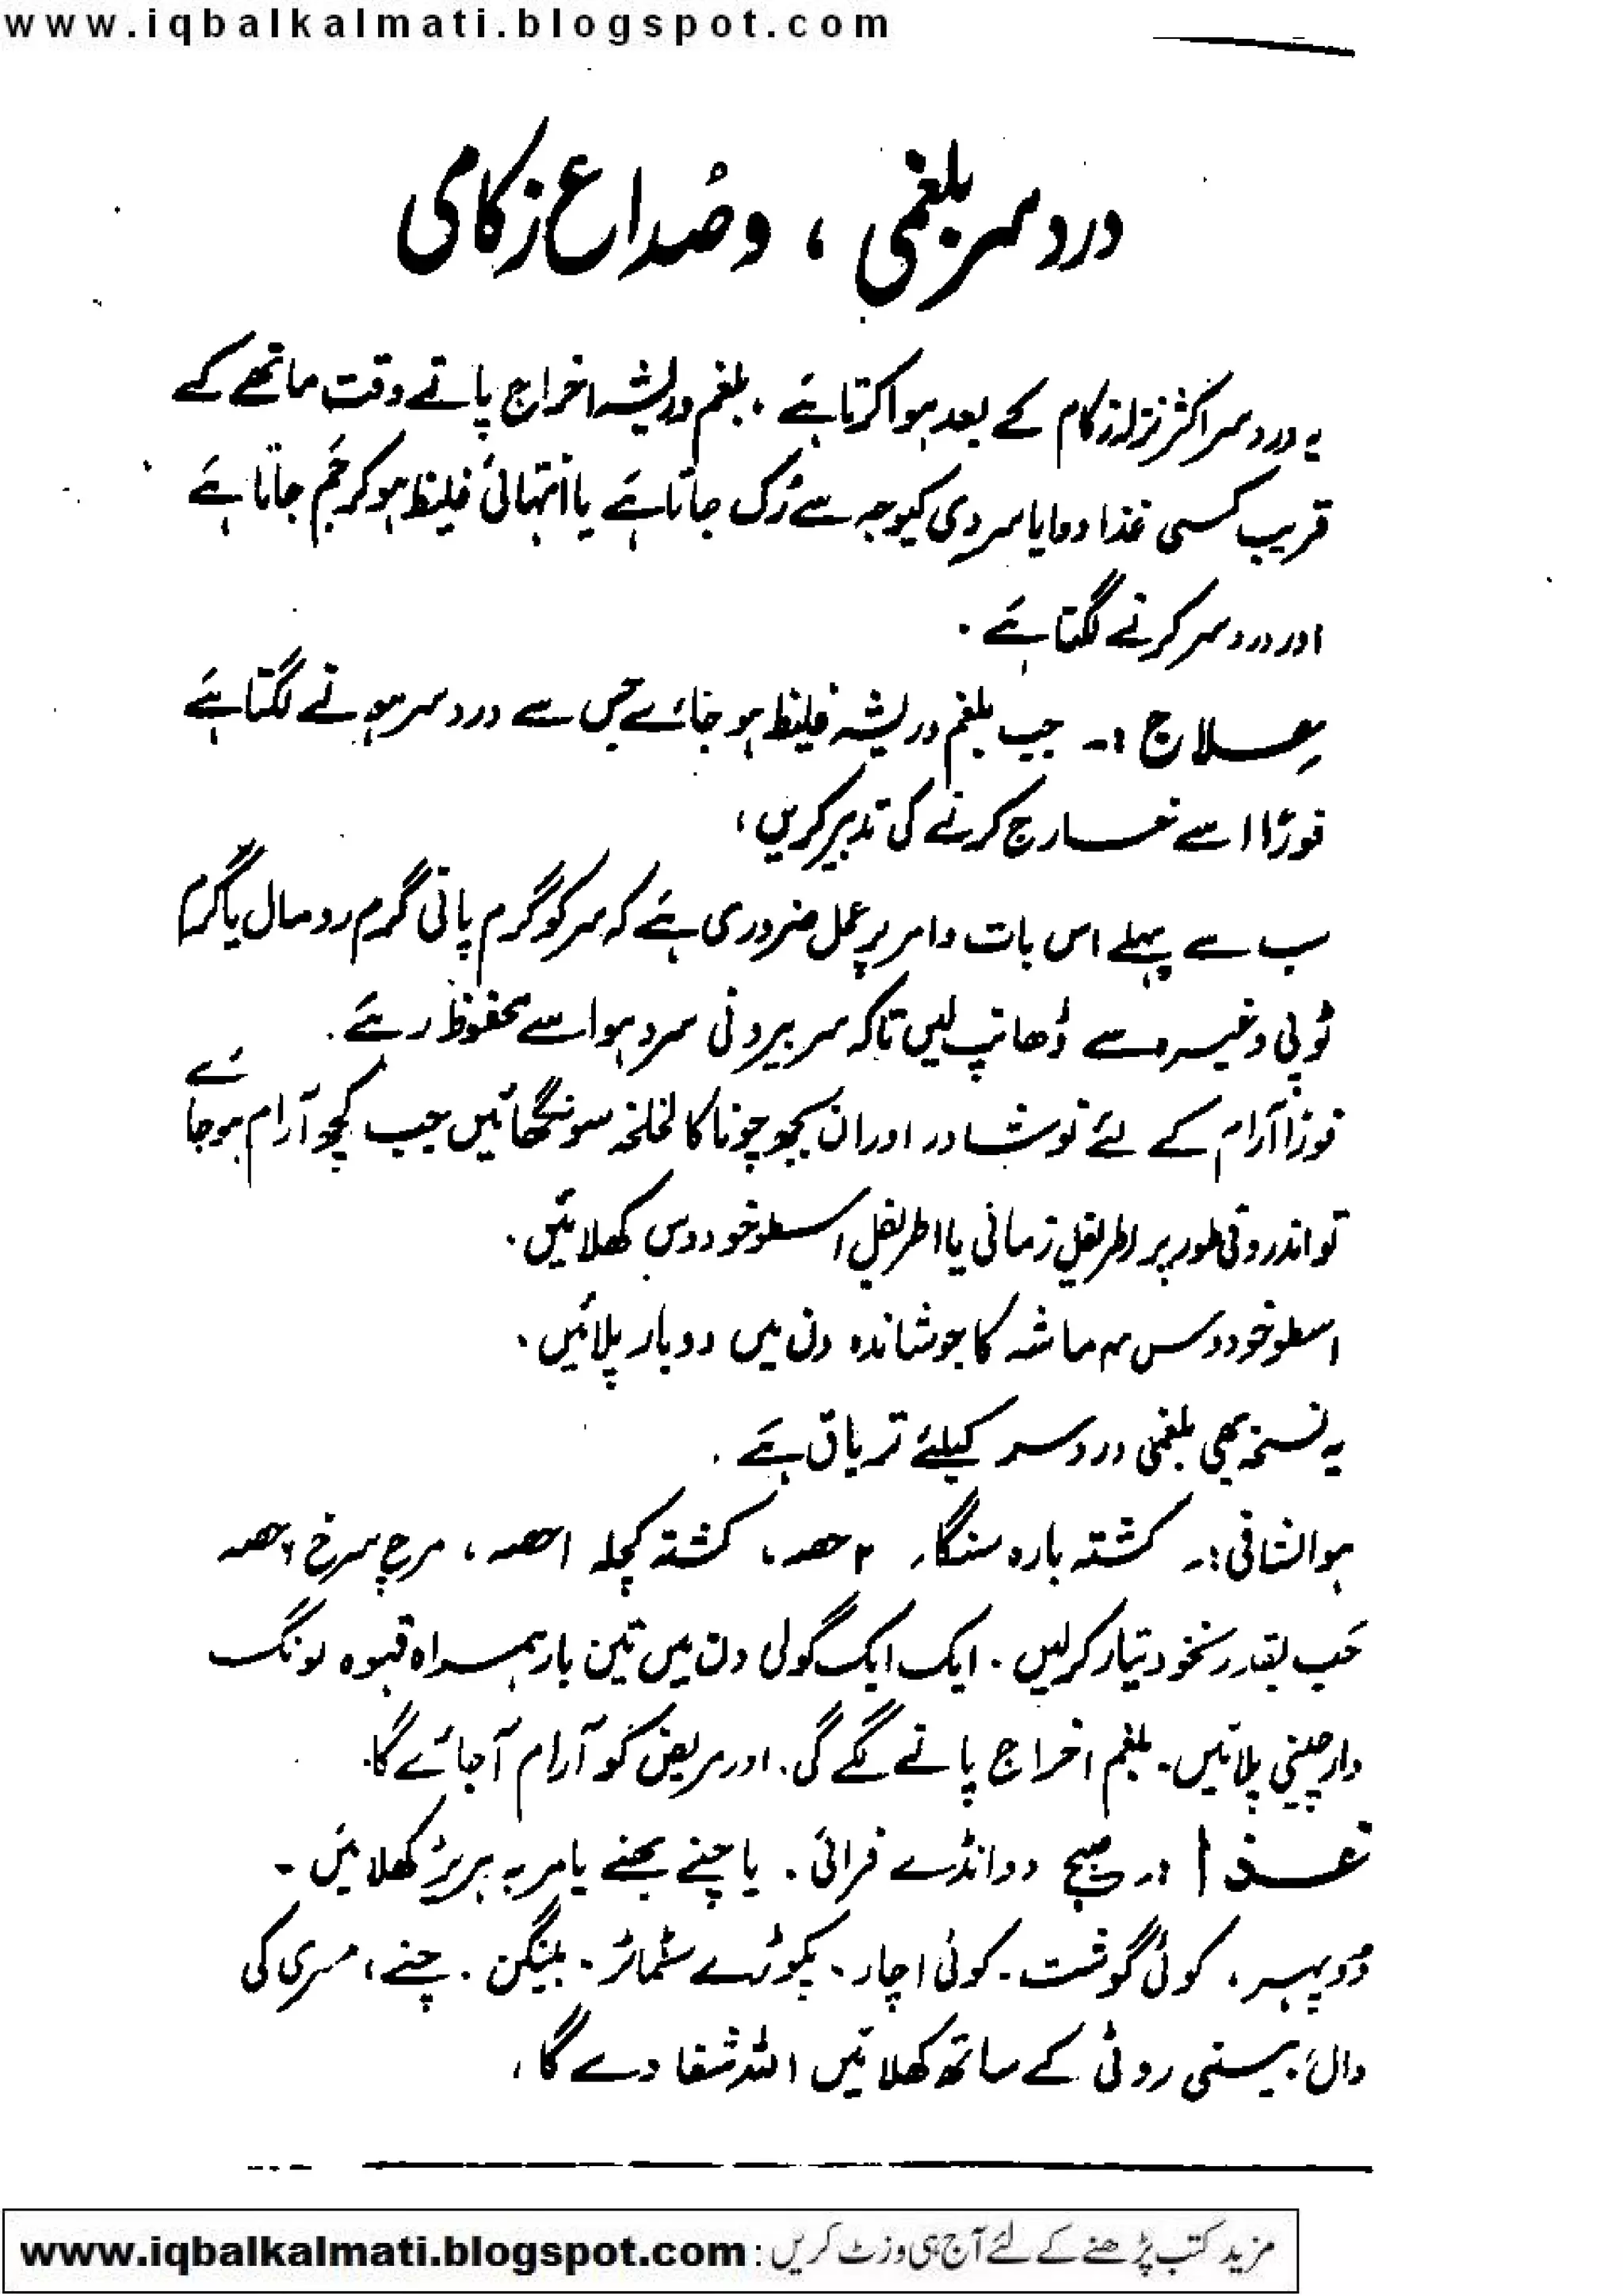 www.iqbalkalmati.blogspot.com
درد سر بلغمی ، و صُداع زکامی
یہ درد سر اکثر نزلہ زکام کے بعد ہوا کرتا ہے ۔ بلغم و ریشہ اخراج پاتے وقت ماتھے کے
قریب کسی غذا دوا یا سردی کیوجہ سے رُک جاتا ہے یا انتہائی غلیظ ہو کر جَم جاتا ہے
اور درد سر کرنے لگتا ہے ۔
عِلاج :۔ جب بلغم و ریشہ غلیظ ہو جائے جس سے درد سر ہونے لگتا ہے
فوراً اسے خارج کرنے کی تدبیر کریں ،
سب سے پہلے اس بات و امر پر عمل ضروری ہے کہ سر کو گرم پانی گرم رومال یا گرم
ٹوپی وغیرہ سے ڈھانپ لیں تاکہ سر بیرونی سرد ہوا سے محفوظ رہے ۔
فوراً آرام کے لئے نوشادر اور ان بجھ چونا کا لخلخہ سونگھائیں جب کچھ آرام ہو جائے
تو اندرونی طور پر اطریفل زمانی یا اطریفل اسطوخودوس کھلائیں ۔
اسطوخودوس ۴ ماشہ کا جوشاندہ دن میں دو بار پلائیں ۔
یہ نسخہ بھی بلغمی درد سر کیلئے تریاق ہے ۔
ہوالشافی :۔ کشتہ بارہ سنگا ۲ حصہ ، کشتہ کچلہ ۱ حصہ ، مرچ سرخ ۶ حصہ
حَب بقدر نخود تیار کرلیں ۔ ایک ایک گولی دن میں تین بار ہمراہ قہوہ لونگ
دارچینی پلائیں ۔ بلغم اخراج پانے لگے گی ۔ اور مریض کو آرام آجائے گا ۔
غذا در صبح دو انڈے فرائی ۔ یا چنے بھنے یا مربہ ہریڑ کھلائیں ۔
دوپہر ، کوئی گوشت ۔ کوئی اچار ۔ پکوڑے ٹماٹر ۔ بینگن ۔ چنے ، مسری کی
دال بیسنی روٹی کے ساتھ کھلائیں اللہ شفا دے گا ،
مزید کتب پڑھنے کے لئے آج ہی وزٹ کریں : www.iqbalkalmati.blogspot.com